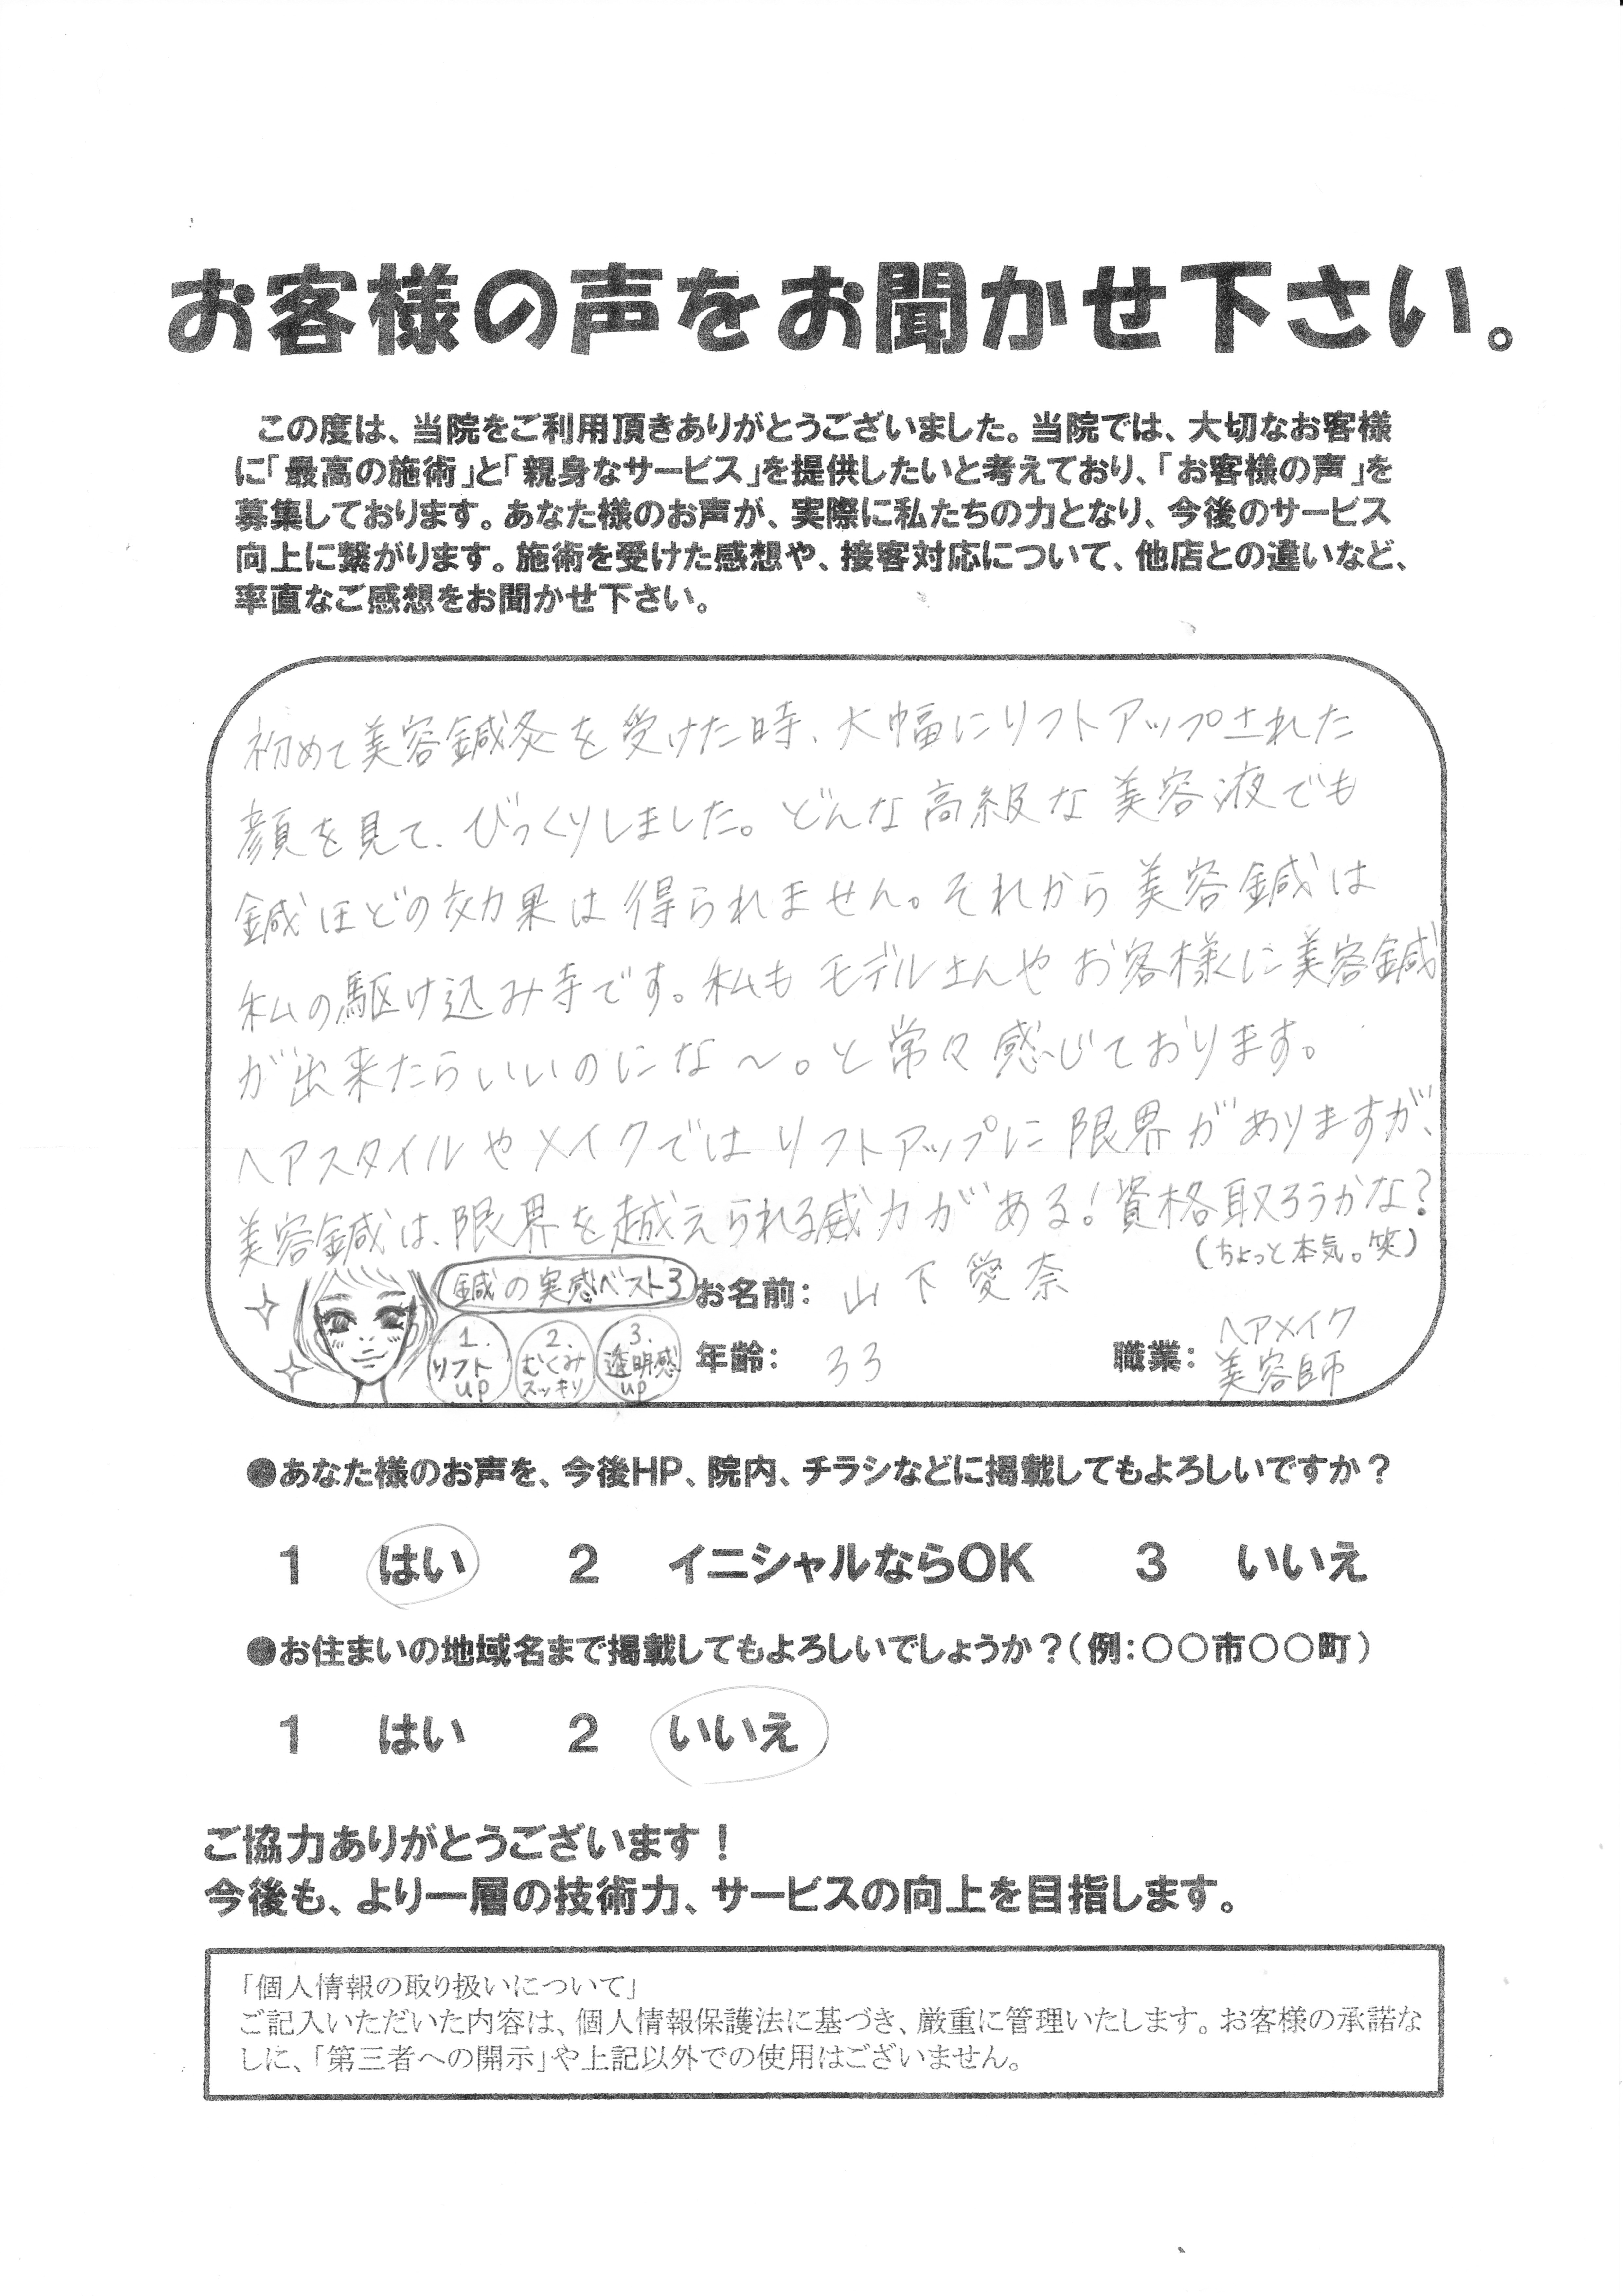 お客様の声をお聞かせ下さい。
この度は、当院をご利用頂きありがとうございました。当院では、大切なお客様
に「最高の施術」と「親身なサービス」を提供したいと考えており、「お客様の声」を
募集しております。あなた様のお声が、実際に私たちの力となり、今後のサービス
向上に繋がります。施術を受けた感想や、接客対応について、他店との違いなど、
率直なご感想をお聞かせ下さい。
初めて美容鍼灸を受けた時、大幅にリフトアップされた
顔を見て、びっくりしました。どんな高級な美容液でも
鍼ほどの効果は得られません。それから美容鍼は
私の駆け込み寺です。私もモデルさんやお客様に美容鍼
が出来たらいいのにな〜。と常々感じております。
ヘアスタイルやメイクではリフトアップに限界がありますが、
美容鍼は、限界を越えられる威力がある!資格取ろうかな?
(ちょっと本気。笑)
鍼の実感ベスト3
1.リフトup
2.むくみスッキリ
3.透明感up
お名前: 山下愛奈
年齢: 33
職業: ヘアメイク
美容師
●あなた様のお声を、今後HP、院内、チラシなどに掲載してもよろしいですか?
1 はい 2 イニシャルならOK 3 いいえ
●お住まいの地域名まで掲載してもよろしいでしょうか?(例:○○市○○町)
1 はい 2 いいえ
ご協力ありがとうございます!
今後も、より一層の技術力、サービスの向上を目指します。
「個人情報の取り扱いについて」
ご記入いただいた内容は、個人情報保護法に基づき、厳重に管理いたします。お客様の承諾な
しに、「第三者への開示」や上記以外での使用はございません。